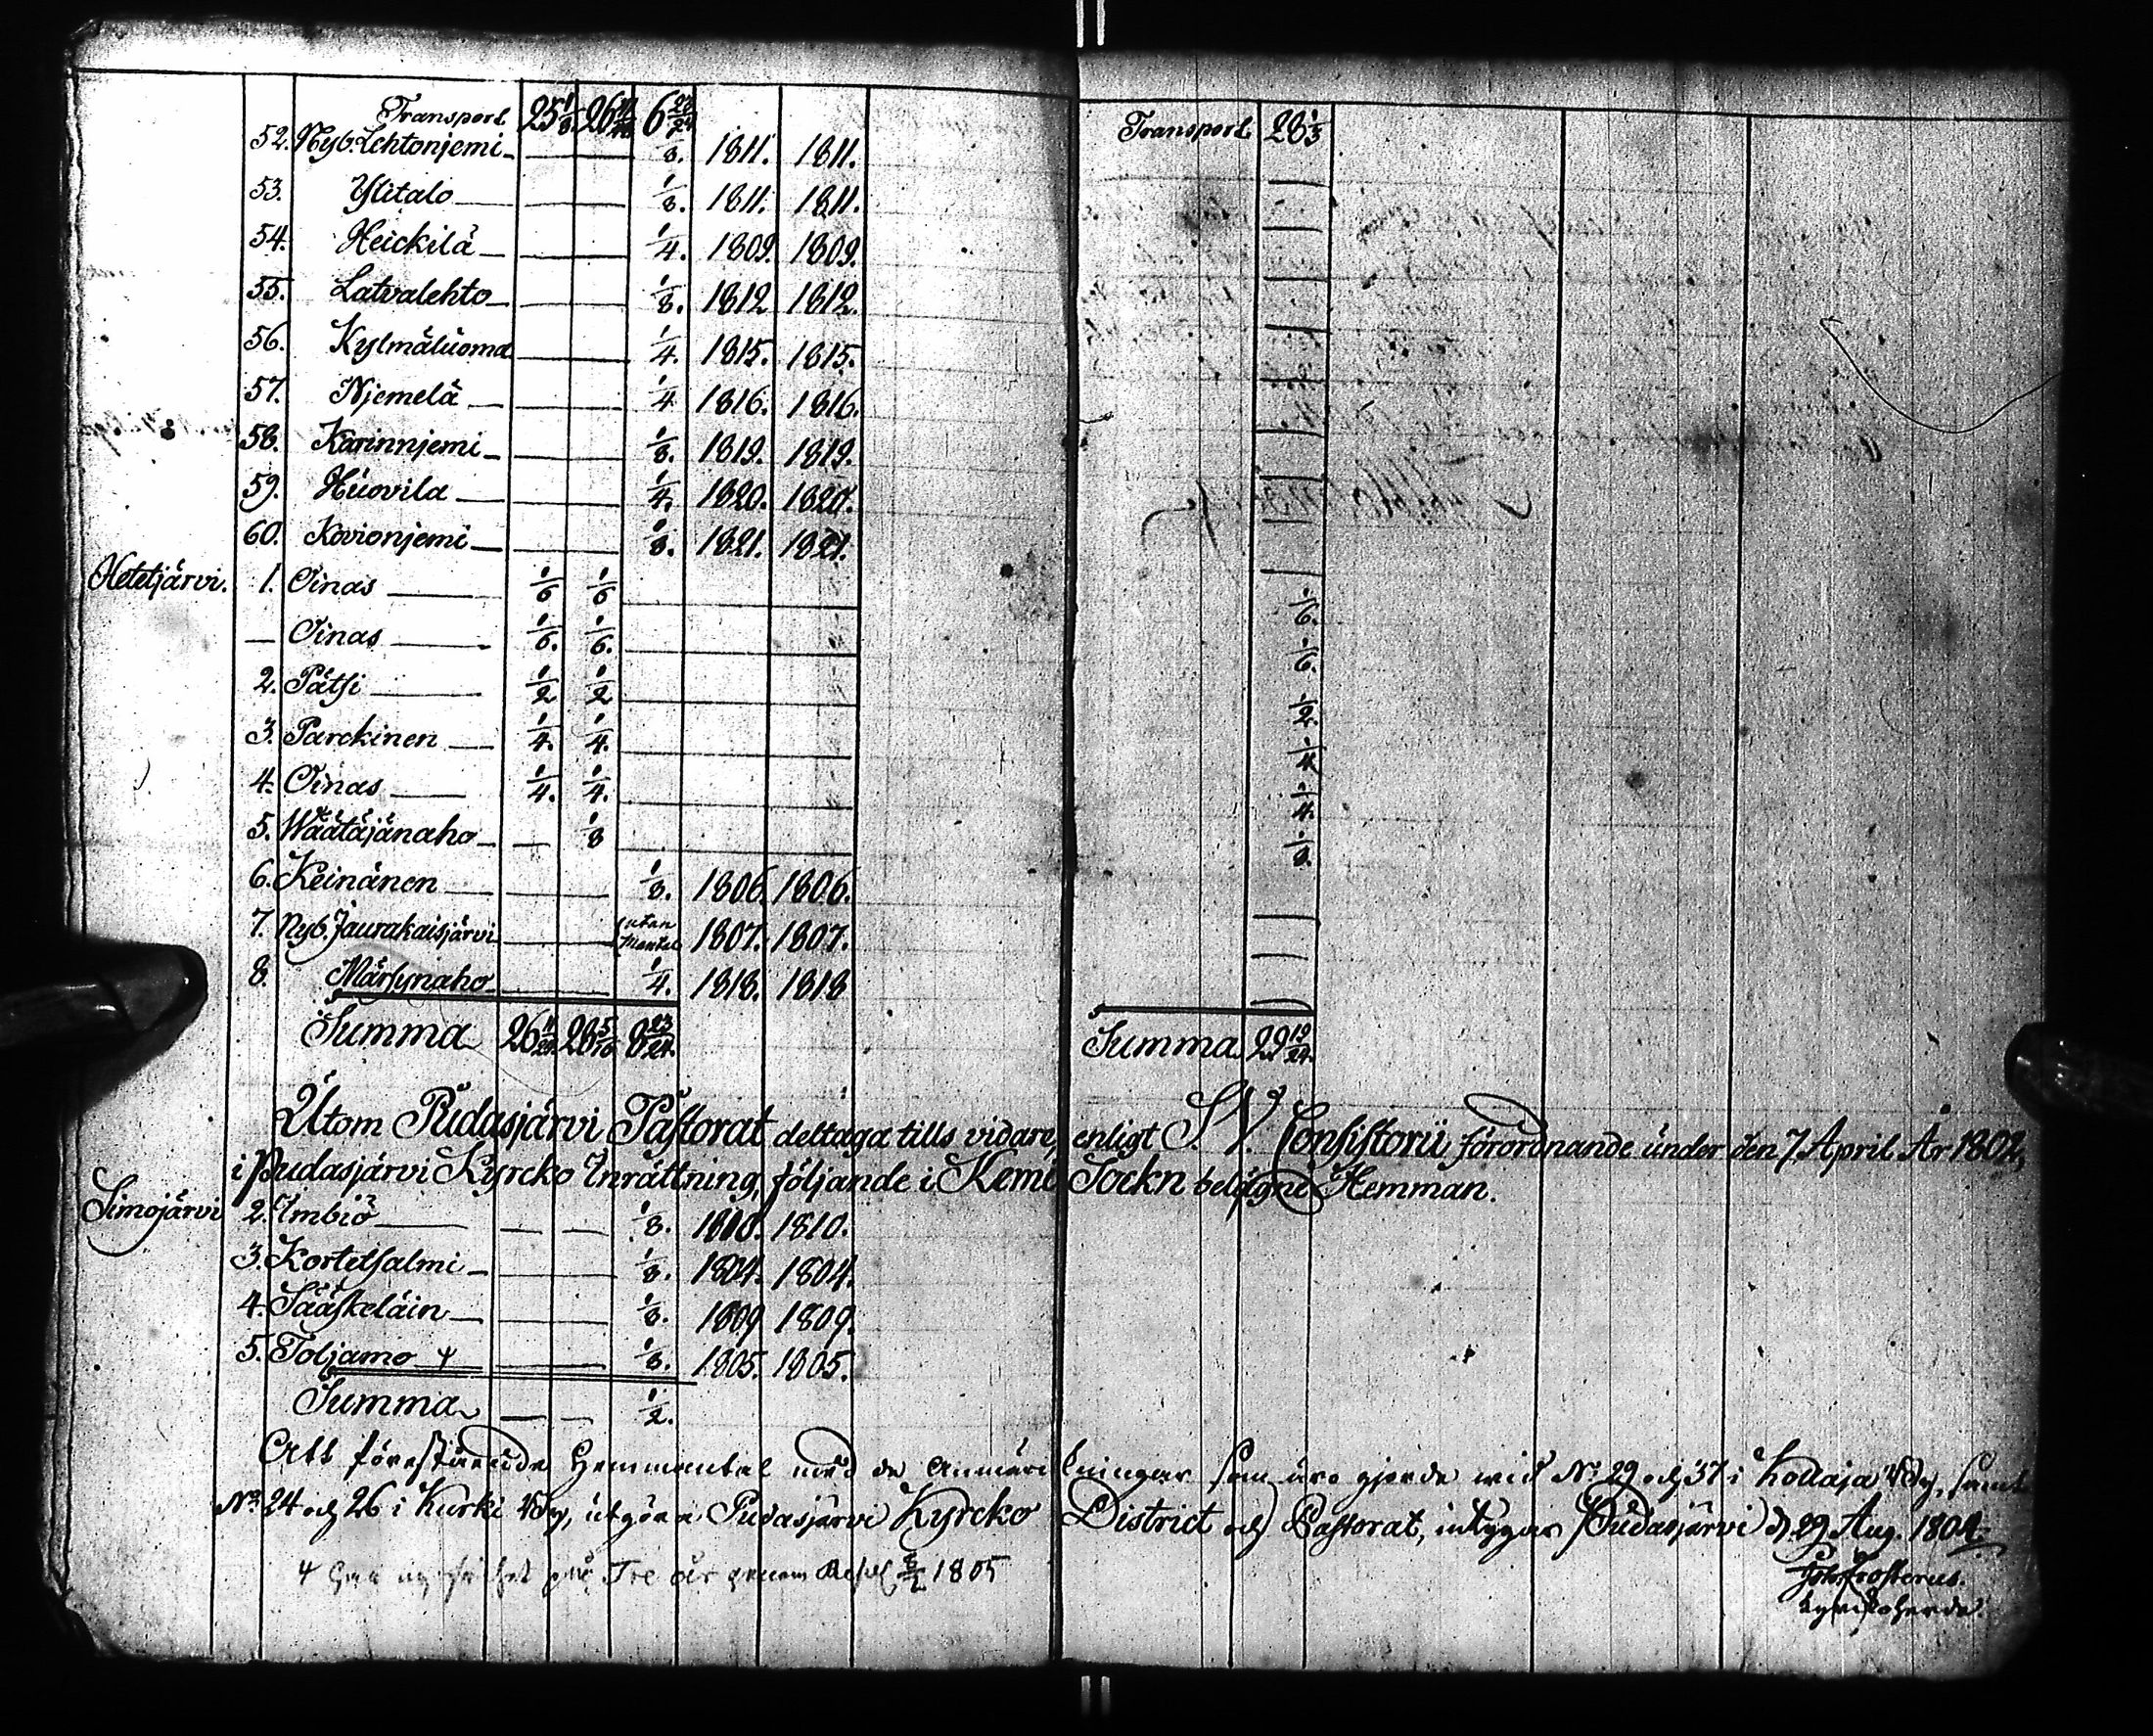 Transport 25 1/8 26 6 23/24 Transport 28 1/3
52. Nyb. Lehtonjemi 1/8. 1811. 1811.
53. Ylitalo 1/8. 1811. 1811.
54. Heickilä 1/4. 1809. 1809.
55. Latvalehto 1/8. 1812 1812.
56. Kylmäluoma 1/4. 1815. 1815.
57. Njemelä 1/4 1816. 1816.
58. Karinnjemi 1/8. 1819. 1819.
59. Huovila 1/4. 1820. 1820.
60. Kovionjemi 1/8. 1821. 1821.
Hetetjärvi. 1. Oinas 1/6 1/6 1/6.
— Oinas 1/6. 1/6. 1/6.
2. Pätsi 1/2 1/2 1/2.
3. Parckinen 1/4. 1/4. 1/4
4. Oinas 1/4. 1/4. 1/4.
5. Wäätäjänaho — 1/8 1/8.
6. Keinänen 1/8. 1806. 1806.
7. Nyb. Jaurakaisjärvi utan Mantal 1807. 1807.
8. Märsynaho 1/4. 1818. 1818
Summa 26 11/24. 28 5/16 8 23/24. Summa 29 19/24.
Utom Pudasjärvi Pastorat deltaga tills vidare, enligt S. V. Consistorii förordnande under den 7 April År 1802,
i Pudasjärvi Kyrcko Inrättning, följande i Kemi Sockn belägne Hemman.
Simojärvi 2. Imbiö — — 1/8. 1810. 1810.
3. Kortetsalmi 1/8. 1804. 1804.
4. Sääskeläin 1/8. 1809 1809.
5. Toljamo 1/8. 1805. 1805.
Summa — — 1/2.
Att förestående Hemmantal med de Anmärckningar som äro gjorde wid No 29 och 37 i Kollaja By, samt
No 24 och 26 i Kurki By, utgöra Pudasjärvi Kyrcko District och Pastorat, intygar Pudasjärvi d. 29 Aug. 1804.
på Tre år genom 1805
Frosterus.
Kyrckoherde.